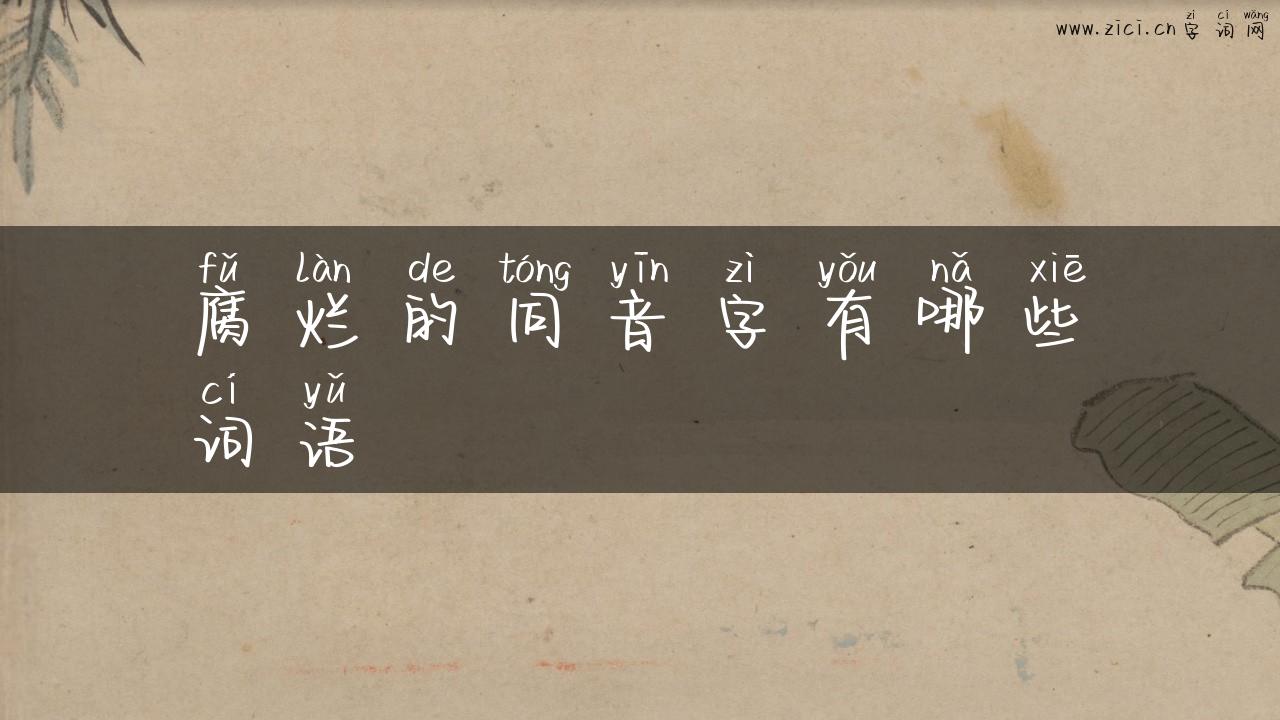 zì cí wǎng
www.zici.cn字词网
fǔ làn de tóng yīn zì yǒu nǎ xiē
腐烂的同音字有哪些
cí yǔ
词语